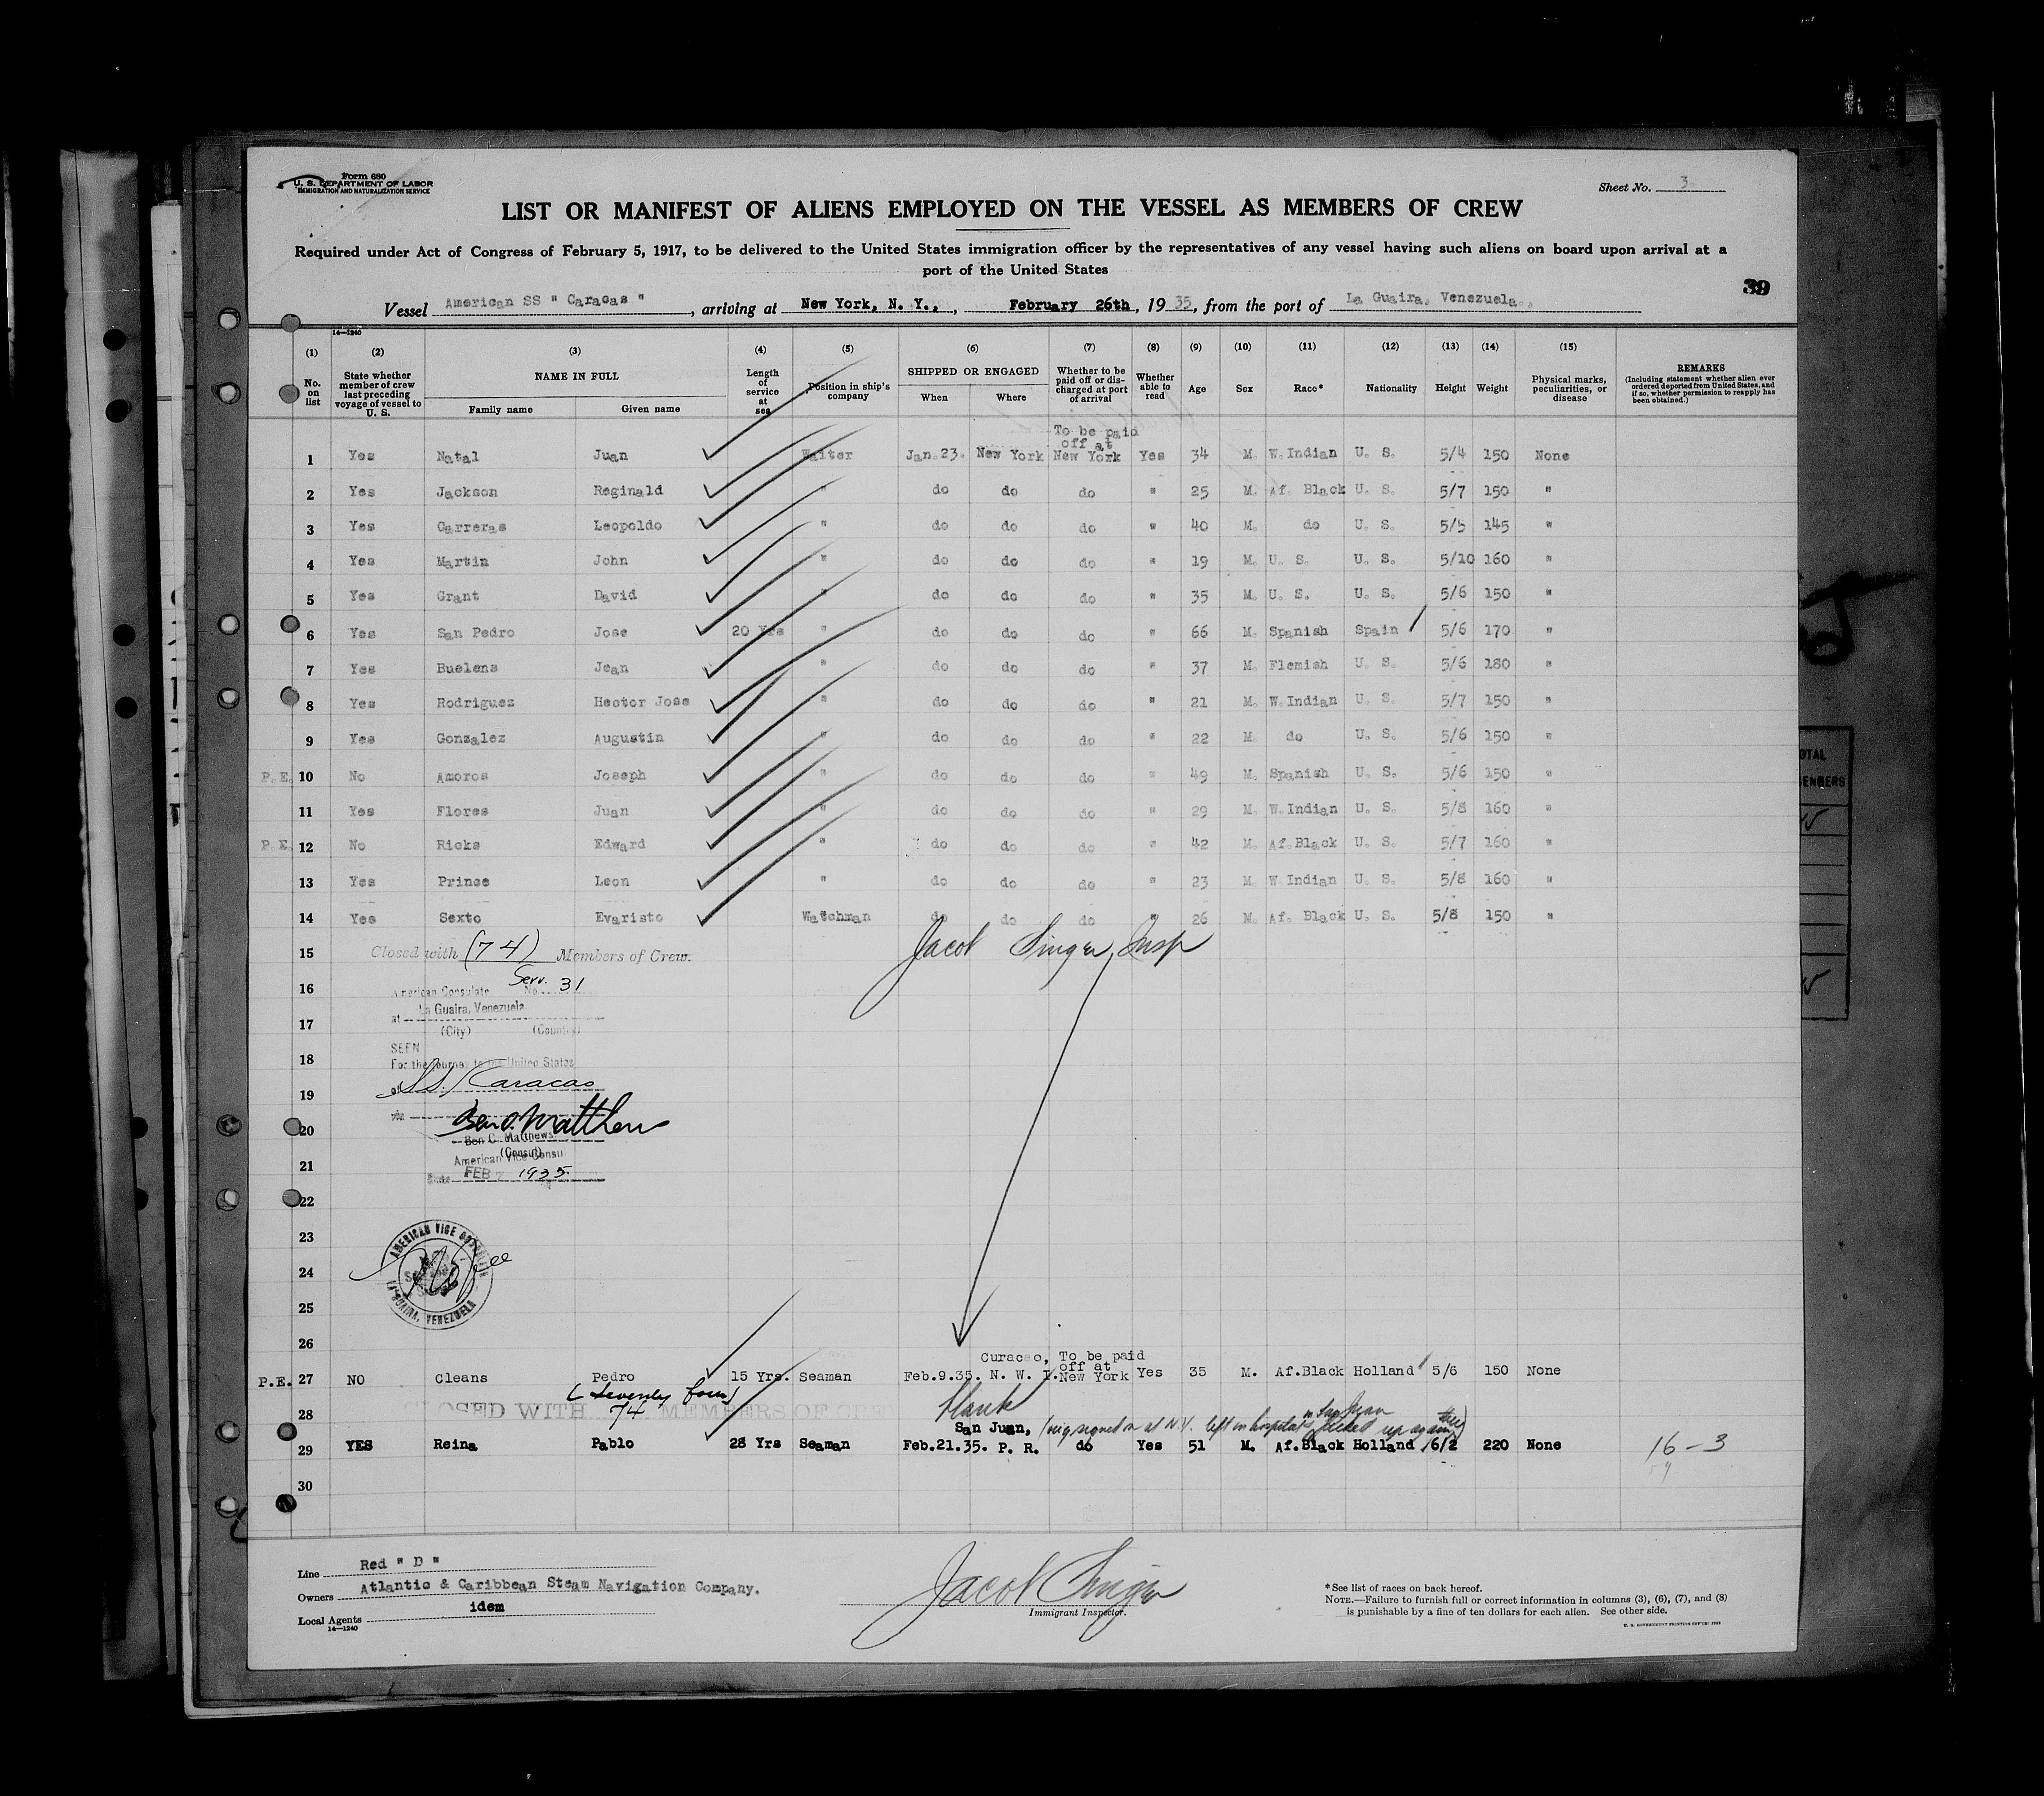 Form 680
U. S. DEPARTMENT OF LABOR
IMMIGRATION AND NATURALIZATION SERVICE
Sheet No. 3
LIST OR MANIFEST OF ALIENS EMPLOYED ON THE VESSEL AS MEMBERS OF CREW
Required under Act of Congress of February 5, 1917, to be delivered to the United States immigration officer by the representatives of any vessel having such aliens on board upon arrival at a
port of the United States
39
Vessel American SS " Caracas ", arriving at New York, N. Y., February 26th, 1935, from the port of La Guaira, Venezuela.
14—1240
(1) No. on list
(2) State whether member of crew last preceding voyage of vessel to U. S.
(3) NAME IN FULL Family name Given name
(4) Length of service at sea
(5) Position in ship's company
(6) SHIPPED OR ENGAGED When Where
(7) Whether to be paid off or discharged at port of arrival
(8) Whether able to read
(9) Age
(10) Sex
(11) Race*
(12) Nationality
(13) Height
(14) Weight
(15) Physical marks, peculiarities, or disease
REMARKS (Including statement whether alien ever ordered deported from United States, and if so, whether permission to reapply has been obtained.)
To be paid
off at
1 Yes Natal Juan Waiter Jan. 23. New York New York Yes 34 M. W. Indian U. S. 5/4 150 None
2 Yes Jackson Reginald " do do do " 25 M. Af. Black U. S. 5/7 150 "
3 Yes Carreras Leopoldo " do do do " 40 M. do U. S. 5/5 145 "
4 Yes Martin John " do do do " 19 M. U. S. U. S. 5/10 160 "
5 Yes Grant David " do do do " 35 M. U. S. U. S. 5/6 150 "
6 Yes San Pedro Jose 20 Yrs " do do do " 66 M. Spanish Spain 5/6 170 "
7 Yes Buelens Jean " do do do " 37 M. Flemish U. S. 5/6 180 "
8 Yes Rodriguez Hector Jose " do do do " 21 M. W. Indian U. S. 5/7 150 "
9 Yes Gonzalez Augustin " do do do " 22 M. do U. S. 5/6 150 "
P. E. 10 No Amoros Joseph " do do do " 49 M. Spanish U. S. 5/6 150 "
11 Yes Flores Juan " do do do " 29 M. W. Indian U. S. 5/8 160 "
P. E. 12 No Ricks Edward " do do do " 42 M. Af. Black U. S. 5/7 160 "
13 Yes Prince Leon " do do do " 23 M. W Indian U. S. 5/8 160 "
14 Yes Sexto Evaristo Watchman do do do " 26 M. Af. Black U. S. 5/8 150 "
15 Closed with (74) Members of Crew. Jacob Singer, Insp
16 American Consulate Serv. No. 31
17 at La Guaira, Venezuela
(City) (Country)
18 SEEN
For the journey to the United States
19 of SS. Caracas
20 Ben C. Matthews
Ben C. Matthews
(Consul)
21 American Vice Consul
Date FEB 1935.
22
23
AMERICAN VICE CONSULATE
LA GUAIRA, VENEZUELA
24
25
26
Curacao, To be paid
off at
P.E. 27 NO Cleans Pedro 15 Yrs. Seaman Feb.9.35. N. W. I. New York Yes 35 M. Af.Black Holland 5/6 150 None
(Seventy four)
28 CLOSED WITH 74 MEMBERS OF CREW
San Juan, (orig signed on at N.Y. left in hospital in San Juan picked up again there)
29 YES Reina Pablo 28 Yrs Seaman Feb.21.35. P. R. do Yes 51 M. Af.Black Holland 6/2 220 None
16 - 3
30
Line Red " D "
Owners Atlantic & Caribbean Steam Navigation Company.
Local Agents idem
14—1240
Jacob Singer
Immigrant Inspector.
*See list of races on back hereof.
NOTE.—Failure to furnish full or correct information in columns (3), (6), (7), and (8)
is punishable by a fine of ten dollars for each alien. See other side.